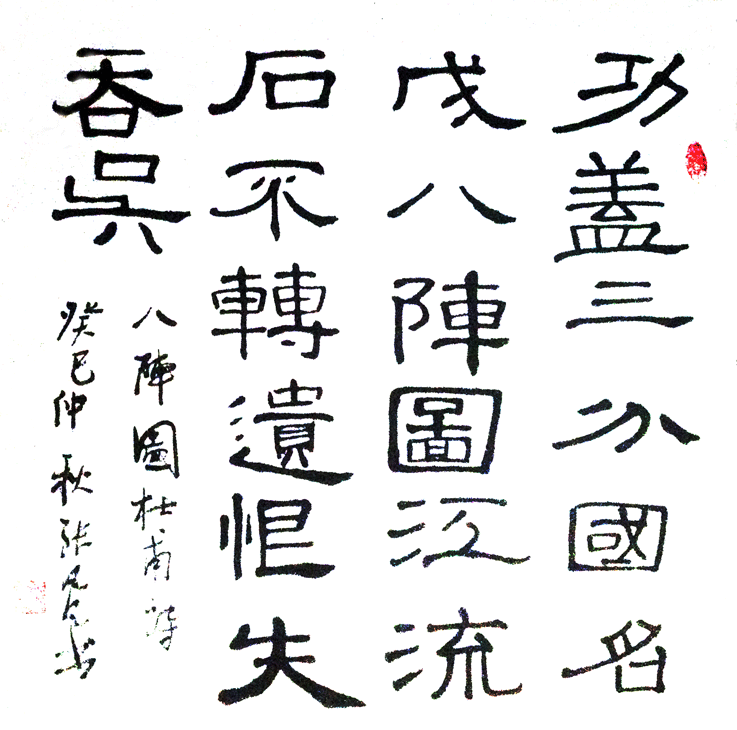 功盖三分國名
成八陣圖江流
石不轉遺恨失
吞吳
八陣圖杜甫詩
癸巳仲秋张书